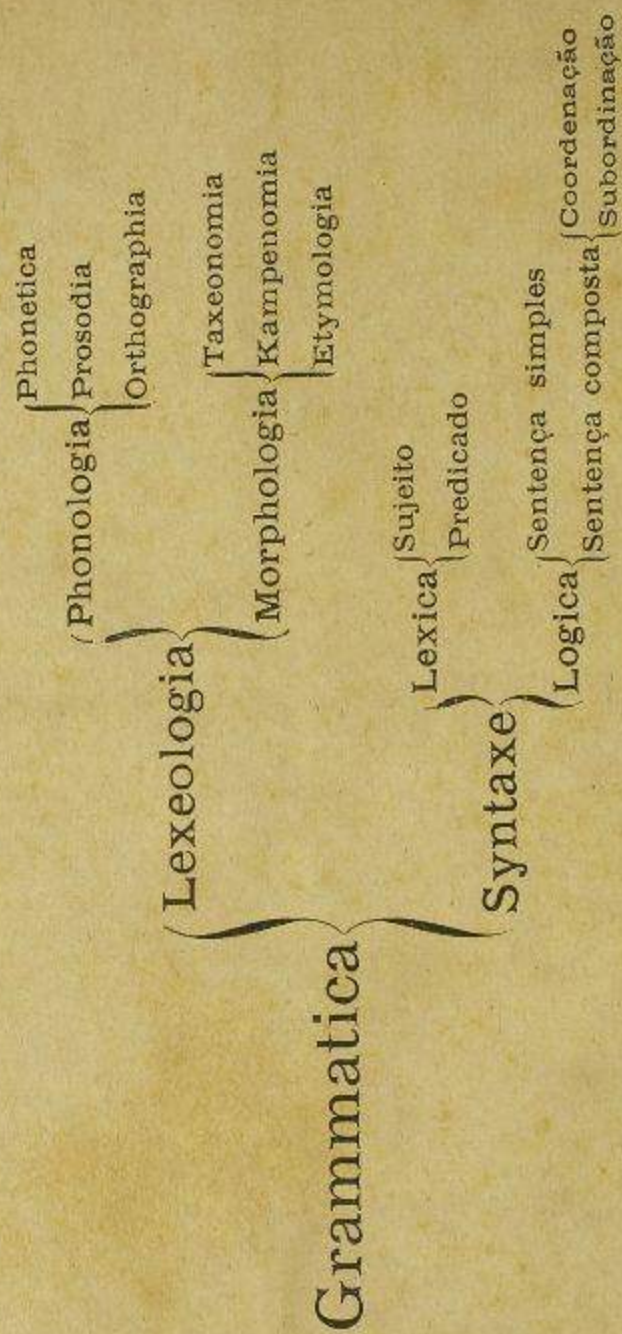 Grammatica
Lexeologia
Phonologia
Phonetica
Prosodia
Orthographia
Morphologia
Taxeonomia
Kampenomia
Etymologia
Syntaxe
Lexica
Sujeito
Predicado
Logica
Sentença simples
Sentença composta
Coordenação
Subordinação